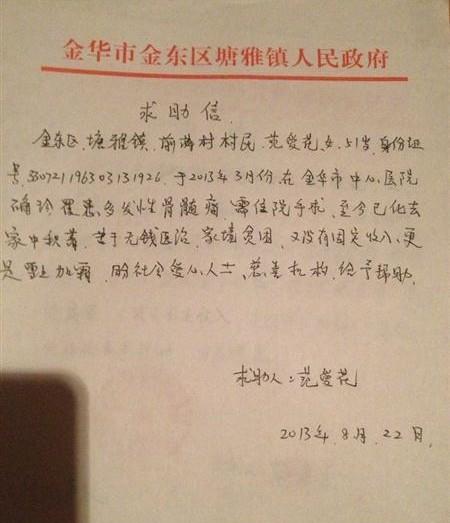 金华市金东区塘雅镇人民政府
求助信
金东区、塘雅镇、前蒋村村民、范爱花、女、51岁、身份证
号、330721196303131926、于2013年3月份、在金华市中心医院
确诊罹患、多发性骨髓瘤、需住院手术、至今已化去
家中积蓄、苦于无钱医治、家境贫困、又没有固定收入、更
是雪上加霜、盼社会爱心人士、慈善机构、给予帮助、
求助人：范爱花
2013年、8月、22日、